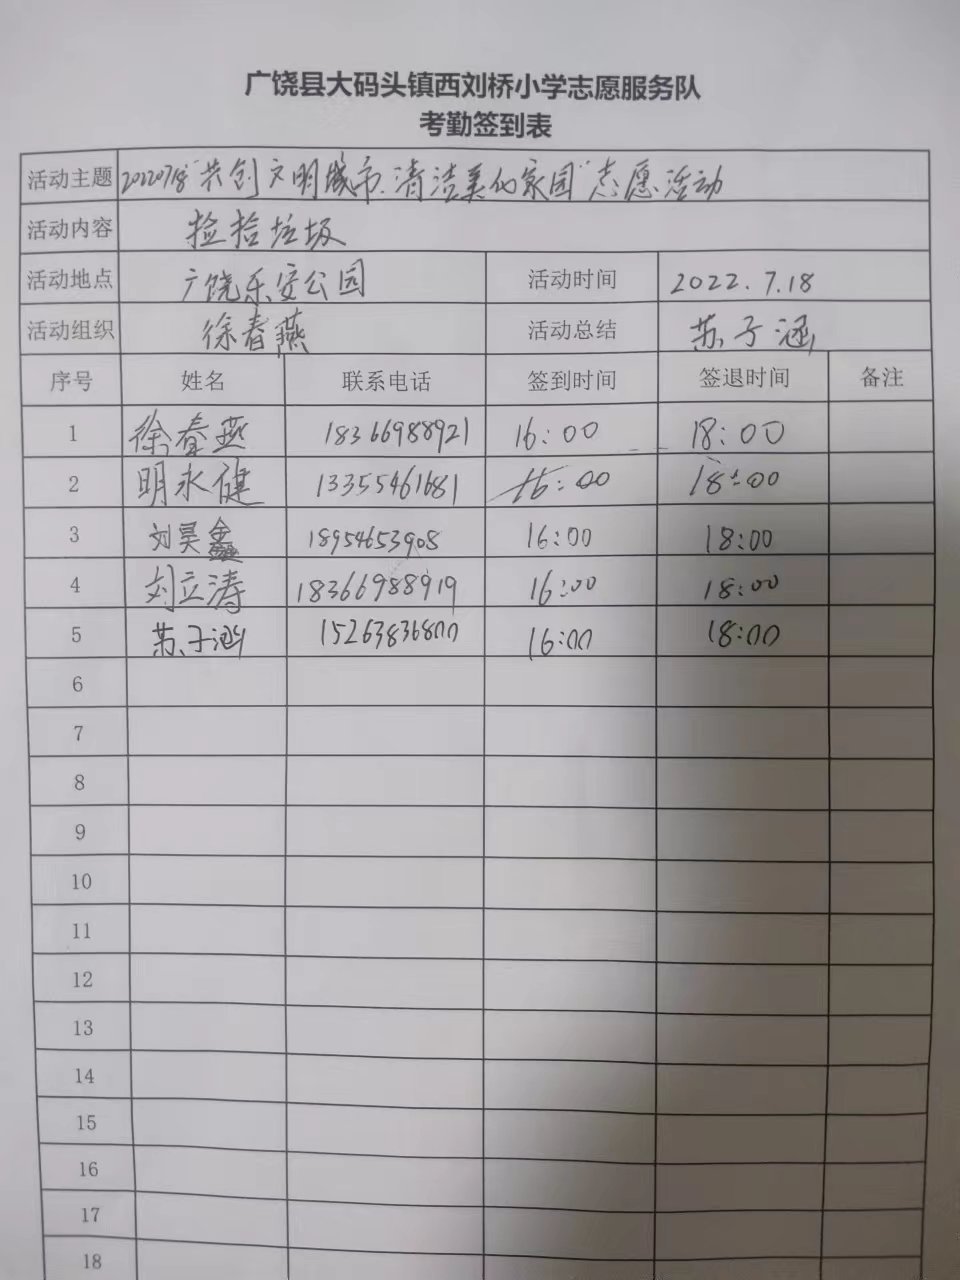 广饶县大码头镇西刘桥小学志愿服务队
考勤签到表
活动主题 20220718"共创文明城市、清洁美的家园"志愿活动
活动内容 捡拾垃圾
活动地点 广饶乐安公园 活动时间 2022.7.18
活动组织 徐春燕 活动总结 苏子涵
序号 姓名 联系电话 签到时间 签退时间 备注
1 徐春燕 18366988921 16:00 18:00
2 明永健 13355461681 16:00 18:00
3 刘昊鑫 18954653908 16:00 18:00
4 刘立涛 18366988919 16:00 18:00
5 苏子涵 15263836800 16:00 18:00
6
7
8
9
10
11
12
13
14
15
16
17
18